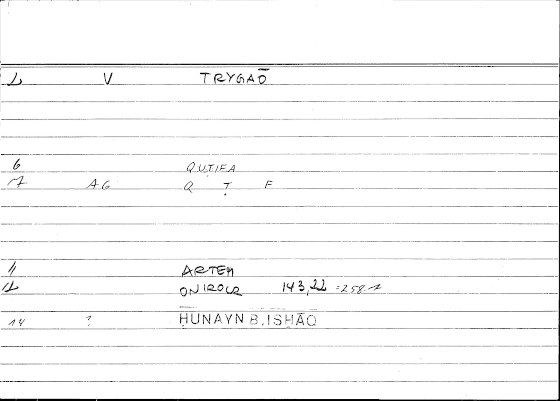 1 V TRYGAŌ
6 QUṬIFA
7 AG Q Ṭ F
11 ARTEM
12 ONIROCR 143,22 =258.7
14 ? ḤUNAYN B. ISḤĀQ